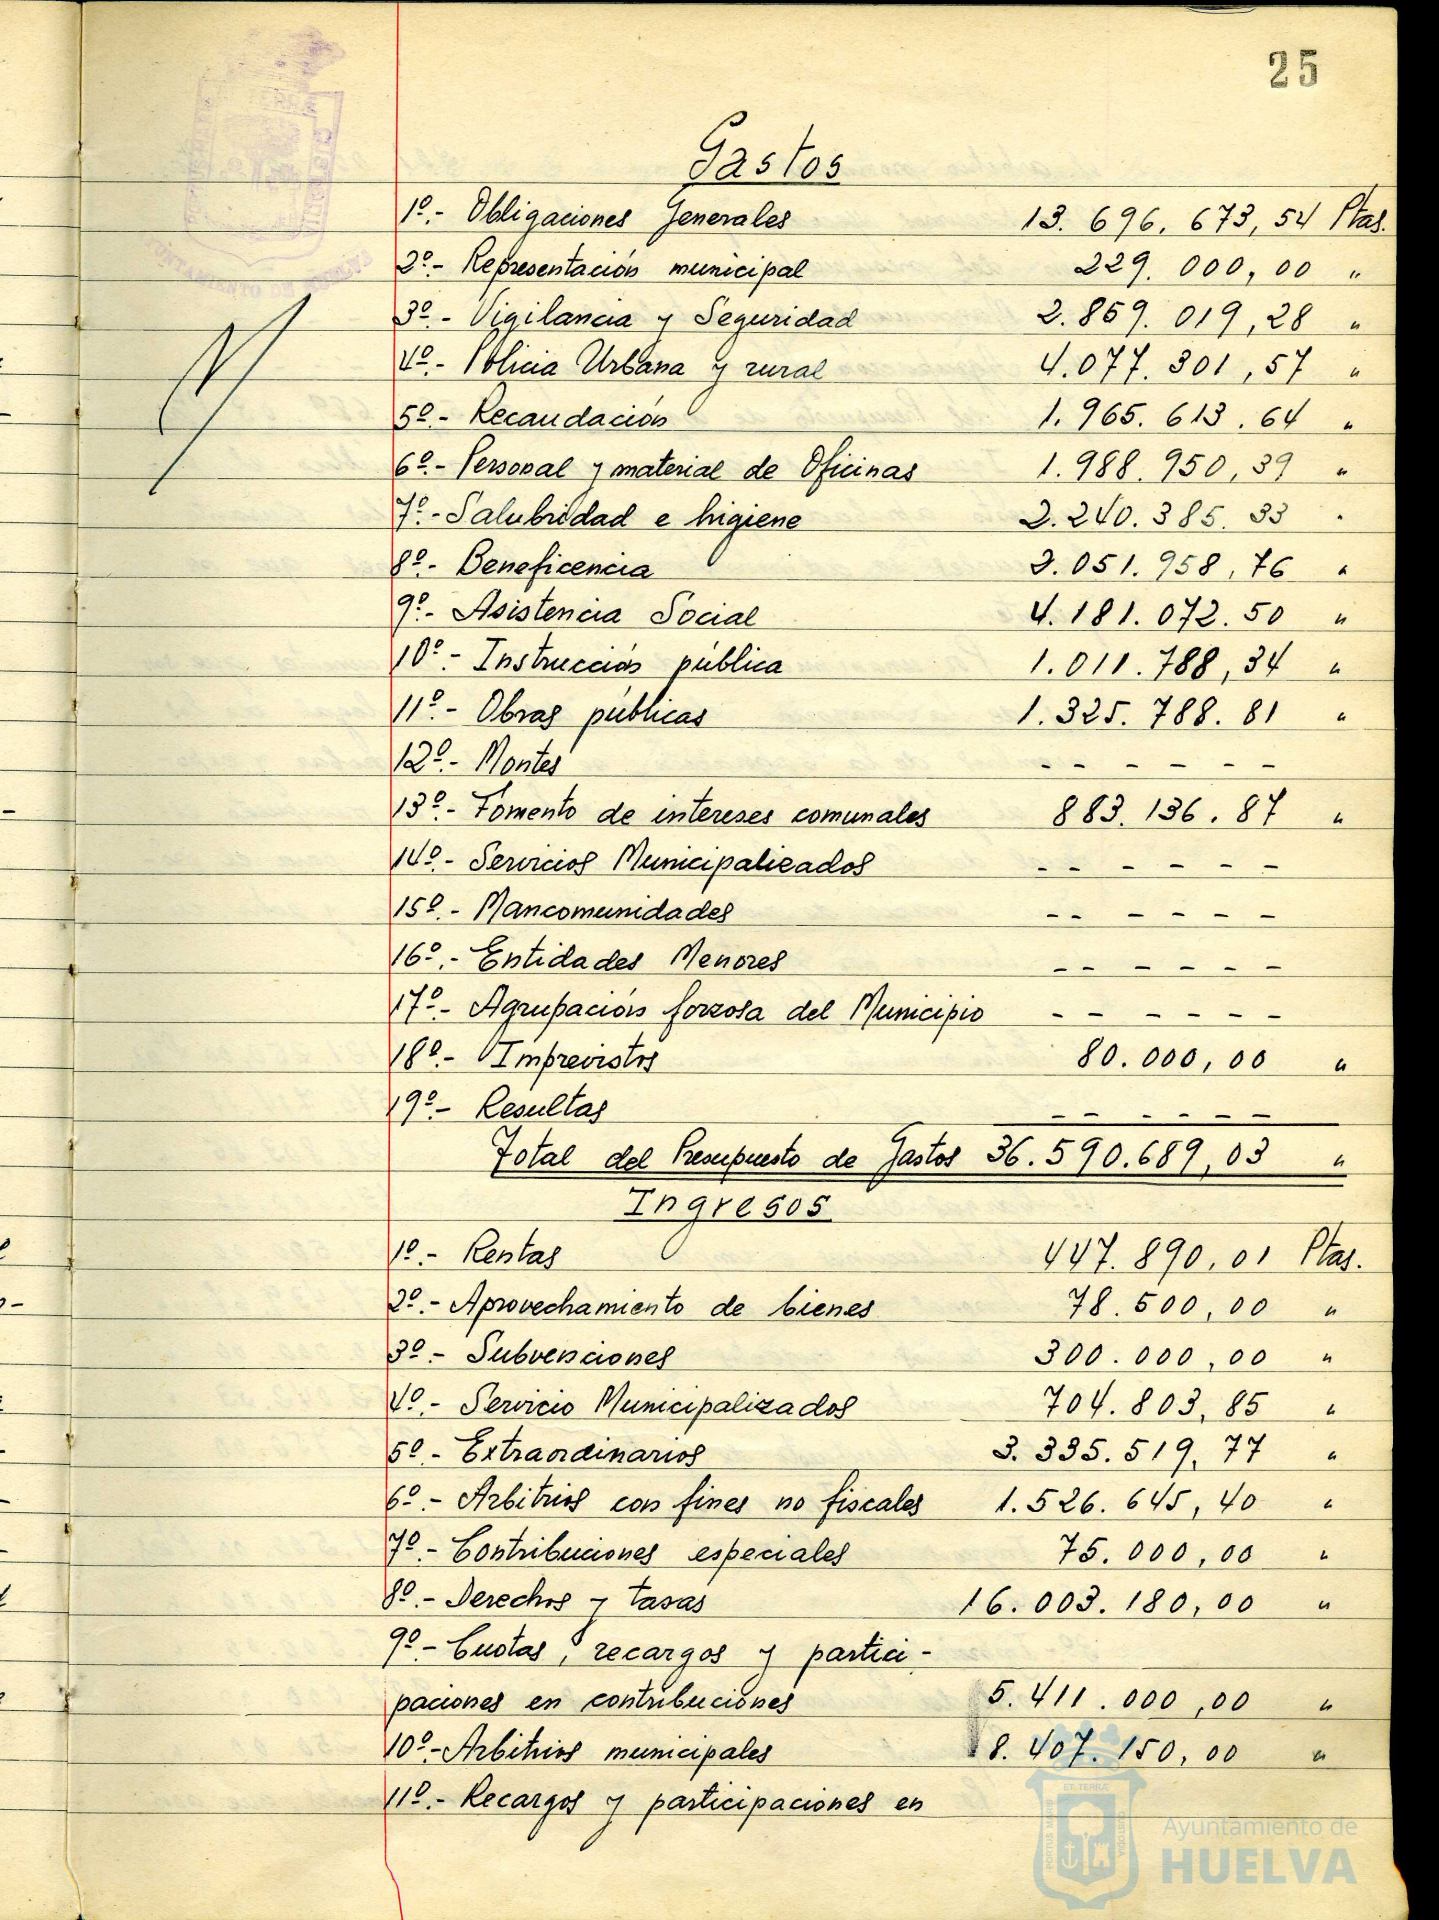 25
Gastos
1º.- Obligaciones Generales 13.696.673,54 Ptas.
2º.- Representación municipal 229.000,00 "
3º.- Vigilancia y Seguridad 2.859.019,28 "
4º.- Policia Urbana y rural 4.077.301,57 "
5º.- Recaudación 1.965.613.64 "
6º.- Personal y material de Oficinas 1.988.950,39 "
7º.- Salubridad e higiene 2.240.385.33 "
8º.- Beneficencia 2.051.958,76 "
9º.- Asistencia Social 4.181.072.50 "
10º.- Instrucción pública 1.011.788,34 "
11º.- Obras públicas 1.325.788.81 "
12º.- Montes - - - - - -
13º.- Fomento de intereses comunales 883.136.87 "
14º.- Servicios Municipalizados - - - - - -
15º.- Mancomunidades - - - - - -
16º.- Entidades Menores - - - - - -
17º.- Agrupación forzosa del Municipio - - - - - -
18º.- Imprevistos 80.000,00 "
19º.- Resultas - - - - - -
Total del Presupuesto de Gastos 36.590.689,03 "
Ingresos
1º.- Rentas 447.890,01 Ptas.
2º.- Aprovechamiento de bienes 78.500,00 "
3º.- Subvenciones 300.000,00 "
4º.- Servicio Municipalizados 704.803,85 "
5º.- Extraordinarios 3.335.519,77 "
6º.- Arbitrios con fines no fiscales 1.526.645,40 "
7º.- Contribuciones especiales 75.000,00 "
8º.- Derechos y tasas 16.003.180,00 "
9º.- Cuotas, recargos y partici-
paciones en contribuciones 5.411.000,00 "
10º.- Arbitrios municipales 8.407.150,00 "
11º.- Recargos y participaciones en
Ayuntamiento de
HUELVA